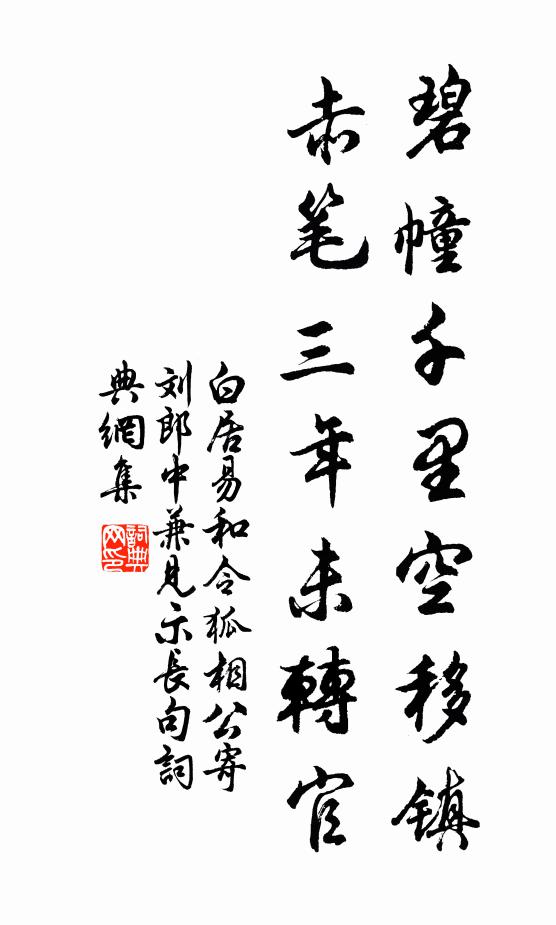 碧幢千里空移镇
赤笔三年未轉官
白居易和令狐相公寄
刘郎中兼見示長句詞
典網集
詞典
网印